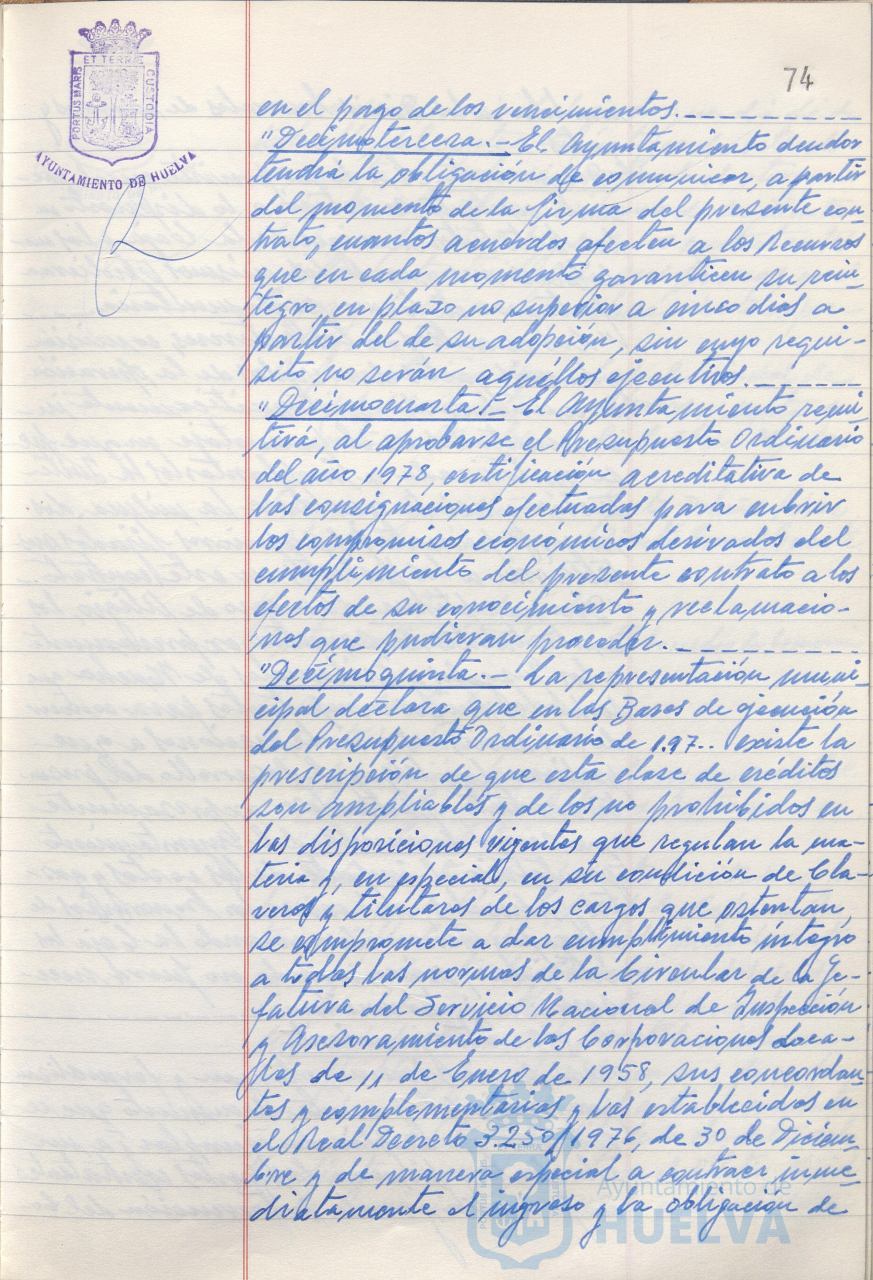 74
ET TERRIS
PORTUS MARIS
CUSTODIA
AYUNTAMIENTO DE HUELVA
en el pago de los vencimientos. _ _ _ _ _ _ _ _ _
"Decimotercera.- El Ayuntamiento deudor
tendrá la obligación de comunicar, a partir
del momento de la firma del presente con
trato, cuantos acuerdos afecten a los Recursos
que en cada momento garanticen su rein-
tegro, en plazo no superior a cinco días a
partir del de su adopción, sin cuyo requi-
sito no serán aquéllos ejecutivos. _ _ _ _ _ _
"Decimocuarta.- El Ayuntamiento remi
tirá, al aprobarse el Presupuesto Ordinario
del año 1978, certificación acreditativa de
las consignaciones efectuadas para cubrir
los compromisos económicos derivados del
cumplimiento del presente contrato a los
efectos de su conocimiento y reclamacio-
nes que pudieran proceder. _ _ _ _ _ _ _ _ _
"Decimoquinta.- La representación muni
cipal declara que en las Bases de ejecución
del Presupuesto Ordinario de 1.97.. existe la
prescripción de que esta clase de créditos
son ampliables y de los no prohibidos en
las disposiciones vigentes que regulan la ma-
teria y, en especial, en su condición de Cla-
veros y titulares de los cargos que ostentan,
se compromete a dar cumplimiento íntegro
a todas las normas de la Circular de la Je-
fatura del Servicio Nacional de Inspección
y Asesoramiento de las Corporaciones Loca-
les de 11 de Enero de 1958, sus concordan-
tes y complementarias y las establecidas en
el Real Decreto 3.250/1976, de 30 de Diciem-
bre y de manera especial a contraer inme-
diatamente el ingreso y la obligación de
Ayuntamiento de
HUELVA